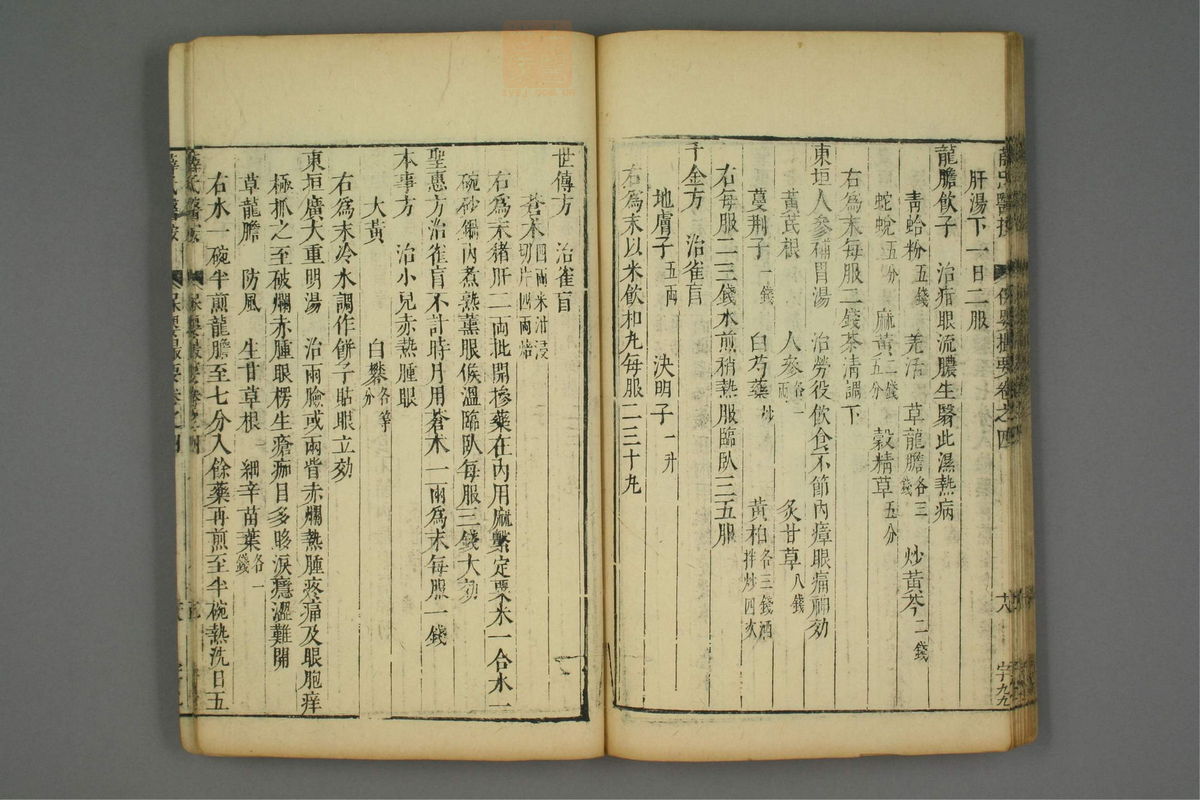 肝湯下一日二服
龍膽飲子　治疳眼流膿生翳此濕熱病
青蛤粉五錢　羌活　草龍膽各三錢　炒黃芩二錢
蛇蛻五分　麻黃二錢五分　穀精草五分
右爲末每服二錢茶淸調下
東垣人參補胃湯　治勞役飲食不節內瘴眼痛神効
黃芪根　人參各一兩　炙甘草八錢
蔓荆子一錢　白芍藥炒　黃柏各三錢酒拌炒四次
右每服二三錢水煎稍熱服臨臥三五服
千金方　治雀盲
地膚子五兩　決明子一升
右爲末以米飲和丸每服二三十丸
薛氏醫按　保嬰撮要卷之四　十八　字九九
世傳方　治雀盲
蒼朮四兩米泔浸切片四兩焙
右爲末猪肝二兩批開摻藥在內用麻繫定粟米一合水一
碗砂鍋內煮熟薰眼候溫臨臥每服三錢大効
聖惠方治雀盲不計時月用蒼朮一兩爲末每服一錢
本事方　治小兒赤熱腫眼
大黃　白礬各等分
右爲末冷水調作餅子貼眼立効
東垣廣大重明湯　治兩臉或兩眥赤爛熱腫疼痛及眼胞痒
極抓之至破爛赤腫眼楞生瘡痂目多眵淚癮澀難開
草龍膽　防風　生甘草根　細辛苗葉各一錢
右水一碗半煎龍膽至七分入餘藥再煎至半碗熱洗日五